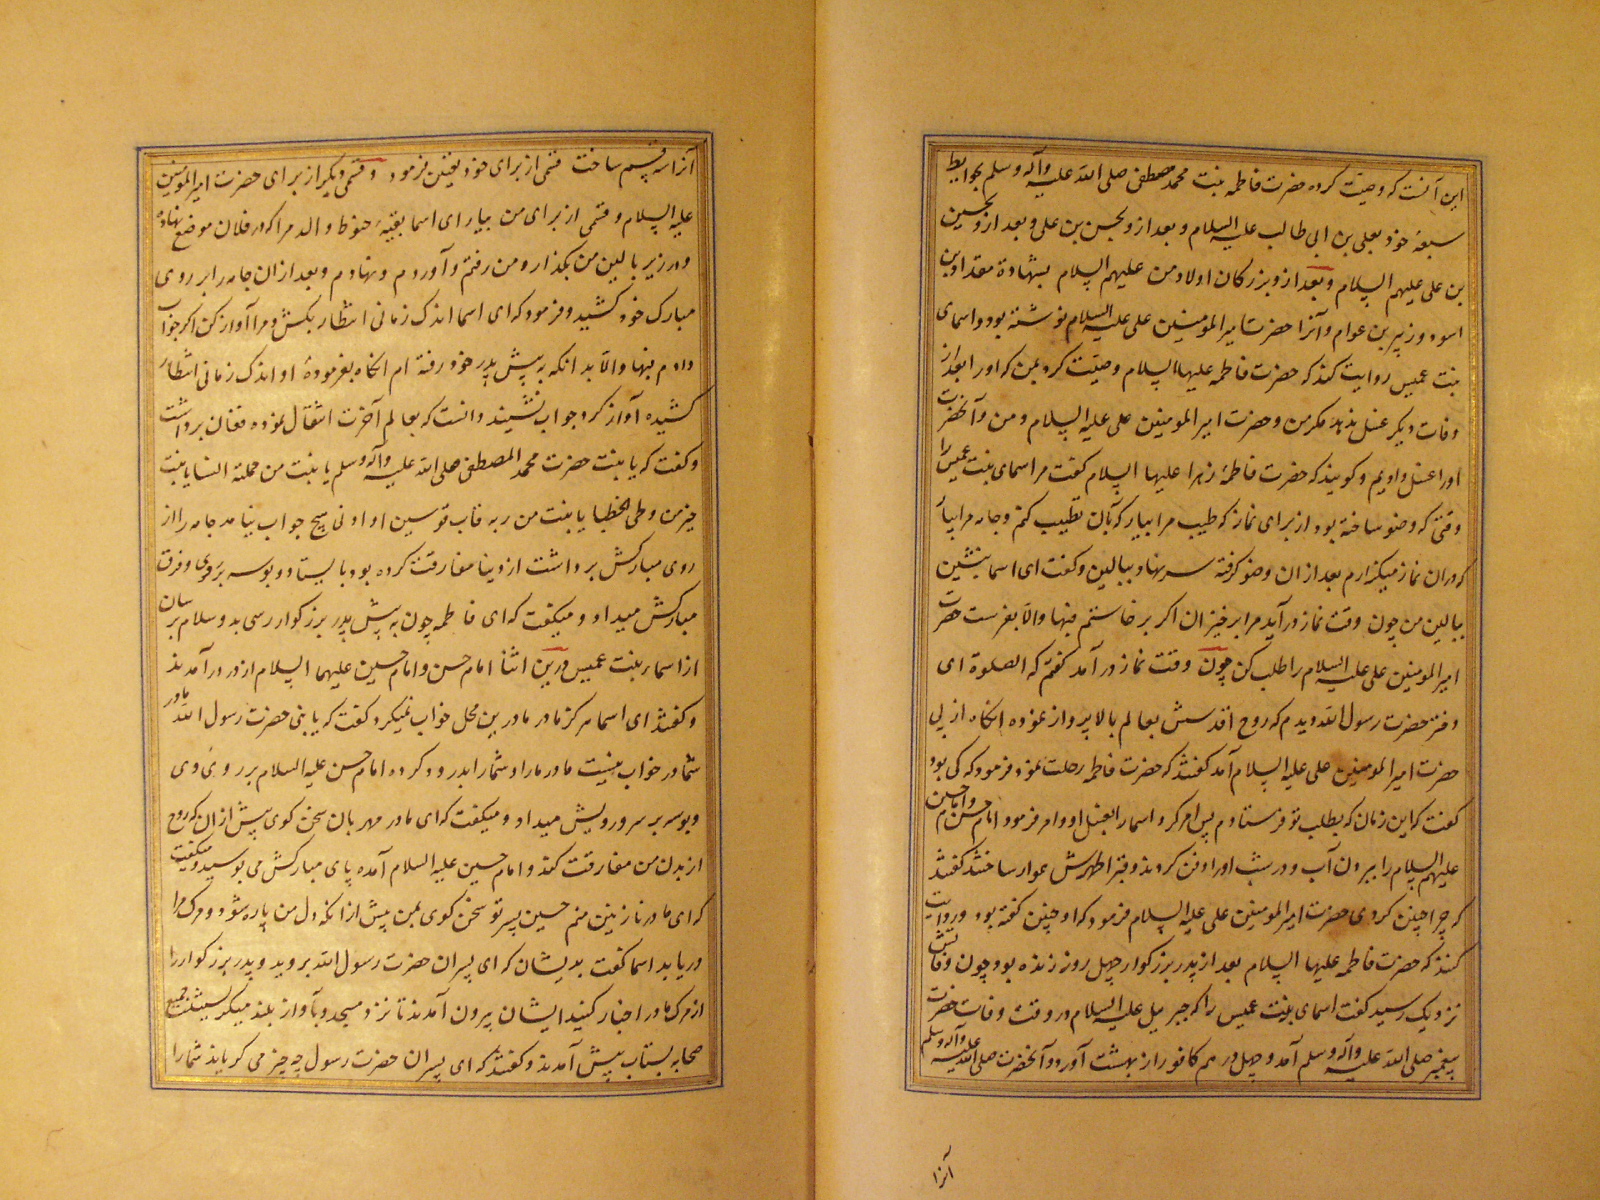 این آنست که وصیّت کرده حضرت فاطمه بنت محمد مصطفی صلی الله علیه وآله وسلم بحوایط
سبعهٔ خود بعلی بن ابی طالب علیه السلام و بعد ازو بحسن بن علی و بعد ازو بحسین
بن علی علیهم السلام و بعد ازو بزرگان اولاد من علیهم السلام بشهادة مقداد بن
اسود و زبیر بن عوام و آنرا حضرت امیر المومنین علی علیه السلام نوشته بود و اسمای
بنت عمیس روایت کند که حضرت فاطمه علیها السلام وصیّت کرد بمن که او را بعد از
وفات دیگر غسل ندهد مگر من و حضرت امیر المومنین علی علیه السلام و من و آنحضرت
او را غسل دادیم و گویند که حضرت فاطمهٔ زهرا علیها السلام گفت مر اسمای بنت عمیس را
وقتی که وضو ساخته بود از برای نماز که طیب مرا بیار که بآن تطیب کنم و جامه مرا بیار
که در آن نماز میگزارم بعد از آن وضو گرفته سر نهاد ببالین و گفت ای اسما بنشین
ببالین من چون وقت نماز در آید مرا برخیزان اگر برخاستم فبها والا بفرست حضرت
امیر المومنین علی علیه السلام را طلب کن چون وقت نماز در آمد گفتم که الصلوة ای
دختر حضرت رسول الله دیدم که روح اقدسش بعالم بالا پرواز نموده آنگاه از پی
حضرت امیر المومنین علی علیه السلام آمد گفتند که حضرت فاطمه رحلت نمود فرمود که کی بود
گفت که این زمان که بطلب تو فرستادم پس امر کرد اسما را بغسل او و امر فرمود امام حسن و امام حسین
علیهم السلام را ببردن آب و در شب او را دفن کردند و قبر اطهرش هموار ساختند گفتند
که چرا چنین کردی حضرت امیر المومنین علی علیه السلام فرمود که او چنین گفته بود و روایت
کنند که حضرت فاطمه علیها السلام بعد از پدر بزرگوار چهل روز زنده بود و چون وفاتش
نزدیک رسید گفت اسمای بنت عمیس را که جبرییل علیه السلام در وقت وفات حضرت
پیغمبر صلی الله علیه وآله وسلم آمد و چهل درهم کافور از بهشت آورد و آنحضرت صلی الله علیه وآله وسلم
آنرا
آنرا سه قسم ساخت قسمی از برای خود یقین فرمود و قسمی دیگر از برای حضرت امیر المؤمنین
علیه السلام و قسمی از برای من بیار ای اسما بقیهٔ حنوط والد مرا که در فلان موضع نهاده
و در زیر بالین من بگذار و من رفتم و آوردم و نهادم و بعد از آن جامه را بر روی
مبارک خود کشید و فرمود که ای اسما اندک زمانی انتظار بکش و مرا آواز کن اگر جواب
دادم فبها والا بدانکه به پیش پدر خود رفته ام آنگاه بفرمودهٔ او اندک زمانی انتظار
کشیده آواز کرد جواب نشنید دانست که بعالم آخرت انتقال نموده فغان برداشت
و گفت که یا بنت حضرت محمد المصطفی صلی الله علیه وآله وسلم یا بنت من حملته النسا یا بنت
خیر من وطی الحصا یا بنت من ربه قاب قوسین او ادنی هیچ جواب نیامد جامه را از
روی مبارکش برداشت از دنیا مفارقت کرده بود بایستاد و بوسه بر روی و فرق
مبارکش میداد و میگفت که ای فاطمه چون به پیش پدر بزرگوار رسی بدو سلام برسان
از اسماء بنت عمیس درین اثنا امام حسن و امام حسین علیهما السلام از در در آمدند
و گفتند ای اسما هرگز مادر ما درین محل خواب نمیکرد گفت که یا بنی حضرت رسول الله مادر
شما در خواب نیست مادر ما را و شما را بدرود کرده امام حسن علیه السلام بر روی وی
و بوسه بر سر و رویش میداد و میگفت که ای مادر مهربان سخن گوی پیش از آن که روح
از بدن من مفارقت کند و امام حسین علیه السلام آمده پای مبارکش می بوسید و میگفت
که ای مادر نازنین منم حسین پسر تو سخن گوی بمن پیش از آنکه دل من پاره شود و مرگ مرا
دریابد اسما گفت بدیشان که ای پسران حضرت رسول الله بروید و پدر بزرگوار را
از مرگ مادر اخبار کنید ایشان بیرون آمدند تا نزد مسجد و بآواز بلند میگریستند جمیع
صحابه بشتاب پیش آمدند و گفتند که ای پسران حضرت رسول چه چیز می گریاند شما را